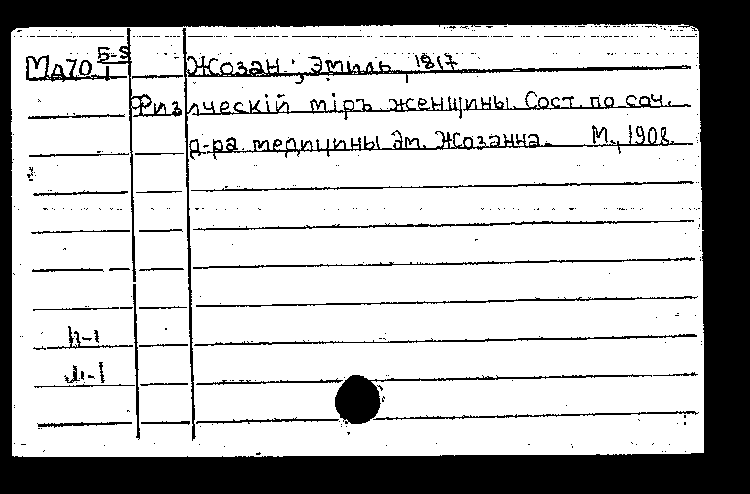 Мд70 Б-9/1 Жозан, Эмиль, 1817
Физическій міръ женщины. Сост. по соч.
д-ра медицины Эм. Жозанна. М., 1908.
п-1
м-1